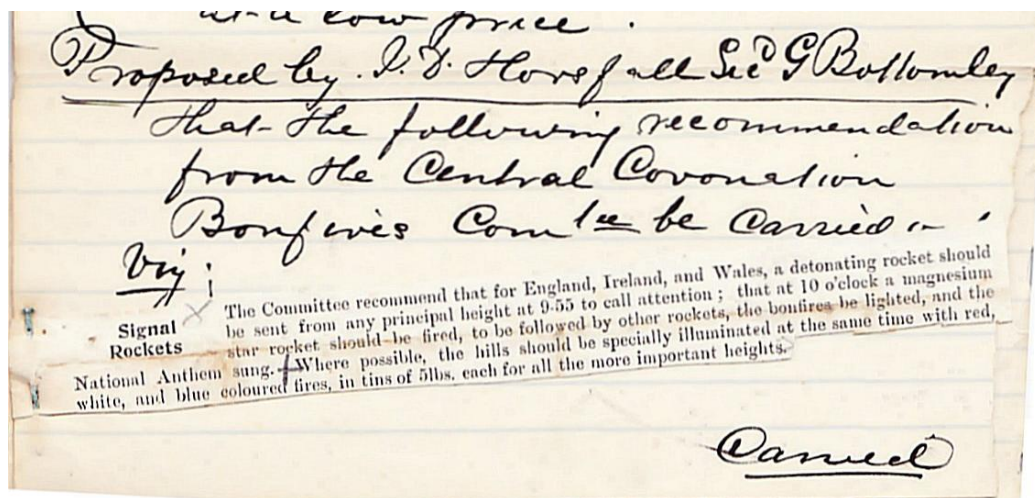 at a low price.
Proposed by. J. D. Horsfall Secd G Bottomley
that the following recommendation
from the Central Coronation
Bonfires Comtee be carried –
Viz;
The Committee recommend that for England, Ireland, and Wales, a detonating rocket should
be sent from any principal height at 9-55 to call attention; that at 10 o'clock a magnesium
Signal
Rockets
star rocket should be fired, to be followed by other rockets, the bonfires be lighted, and the
National Anthem sung. Where possible, the hills should be specially illuminated at the same time with red,
white, and blue coloured fires, in tins of 5lbs, each for all the more important heights.
Carried